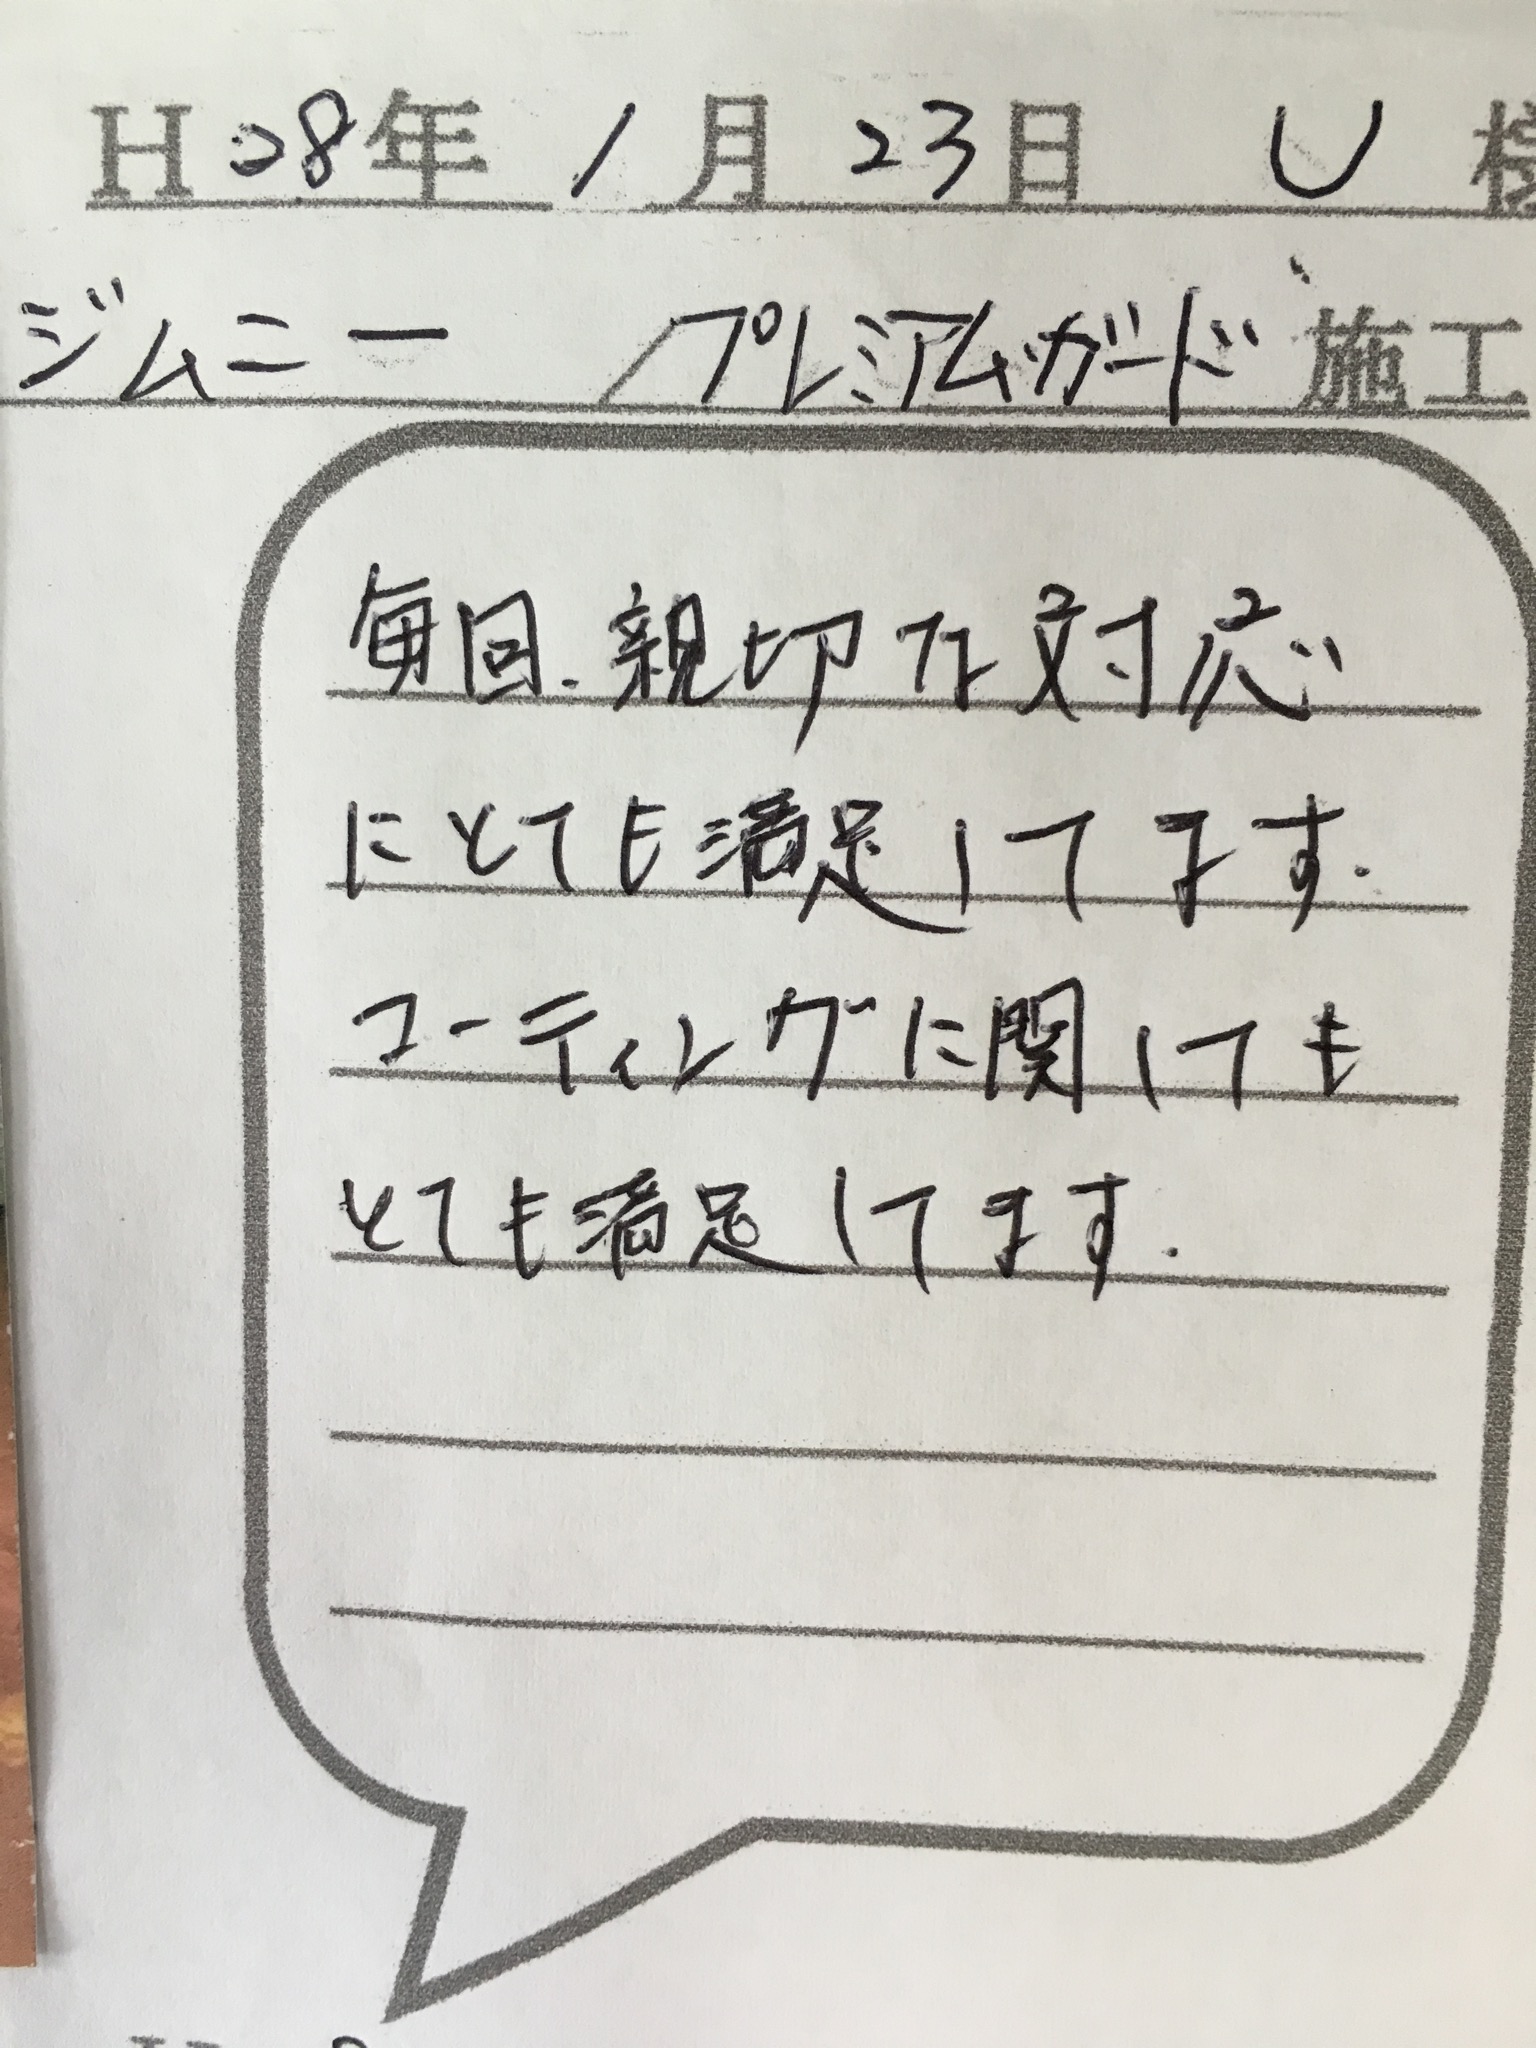 H28年1月23日 U 様
ジムニー/プレミアムガード施工
毎回、親切な対応
にとても満足してます.
コーティングに関しても
とても満足してます.